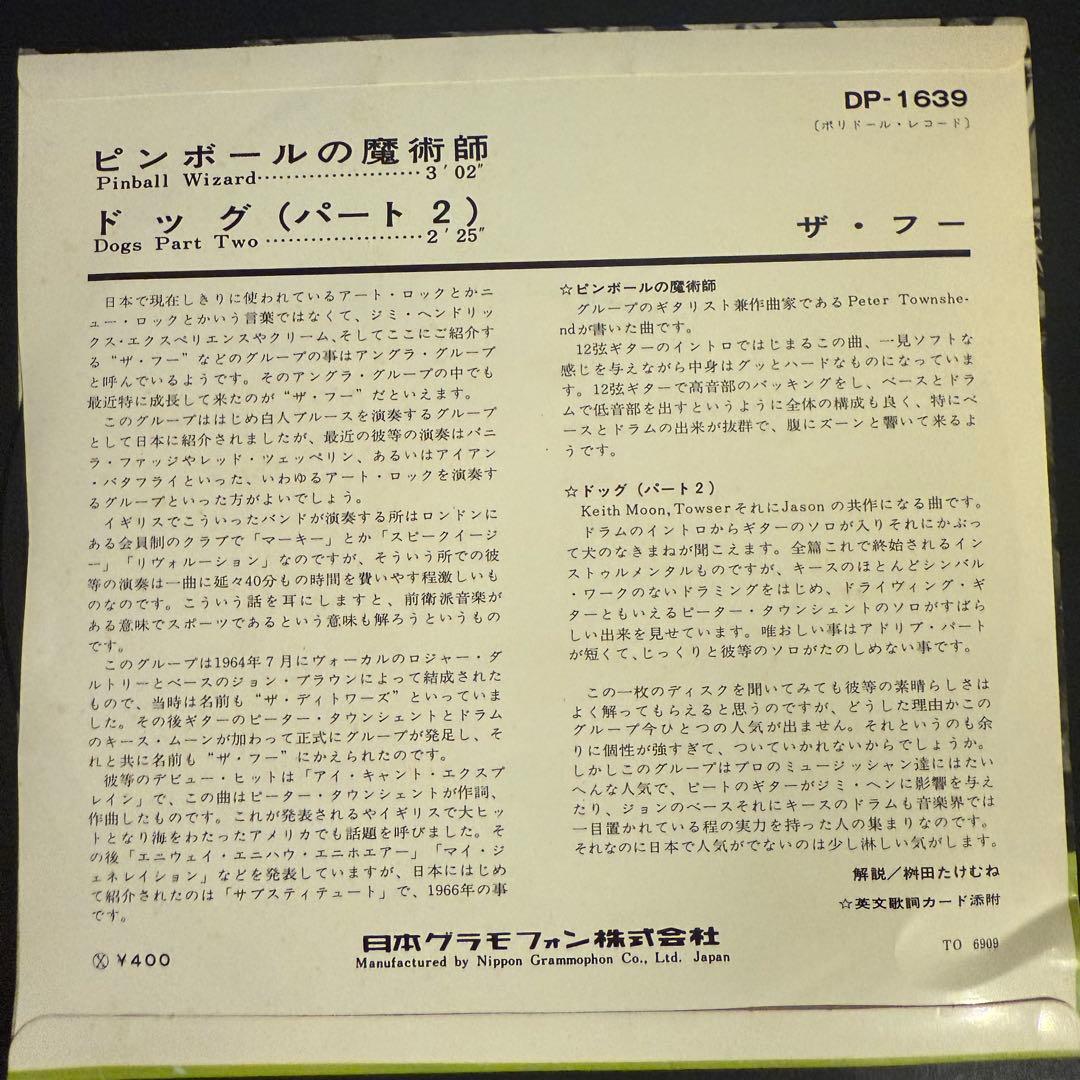 DP-1639
〔ポリドール・レコード〕
ピンボールの魔術師
Pinball Wizard……………………3′02″
ドッグ（パート2）
Dogs Part Two…………………2′25″
ザ・フー
日本で現在しきりに使われているアート・ロックとかニ
ュー・ロックとかいう言葉ではなくて、ジミ・ヘンドリッ
クス・エクスペリエンスやクリーム、そしてここにご紹介す
る“ザ・フー”などのグループの事はアングラ・グループ
と呼んでいるようです。そのアングラ・グループの中でも
最近特に成長して来たのが“ザ・フー”だといえます。
このグループははじめ白人ブルースを演奏するグループ
として日本に紹介されましたが、最近の彼等の演奏はバニ
ラ・ファッジやレッド・ツェッペリン、あるいはアイアン
・バタフライといった、いわゆるアート・ロックを演奏す
るグループといった方がよいでしょう。
イギリスでこういったバンドが演奏する所はロンドンに
ある会員制のクラブで「マーキー」とか「スピークイージ
ー」「リヴォルーション」なのですが、そういう所での彼
等の演奏は一曲に延々40分もの時間を費いやす程激しいも
のなのです。こういう話を耳にしますと、前衛派音楽が
ある意味でスポーツであるという意味も解ろうというもの
です。
このグループは1964年7月にヴォーカルのロジャー・ダ
ルトリーとベースのジョン・ブラウンによって結成された
もので、当時は名前も“ザ・ディトワーズ”といっていま
した。その後ギターのピーター・タウンシェントとドラム
のキース・ムーンが加わって正式にグループが発足し、そ
れと共に名前も“ザ・フー”にかえられたのです。
彼等のデビュー・ヒットは「アイ・キャント・エクスプ
レイン」で、この曲はピーター・タウンシェントが作詞、
作曲したものです。これが発表されるやイギリスで大ヒッ
トとなり海をわたったアメリカでも話題を呼びました。そ
の後「エニウェイ・エニハウ・エニホエアー」「マイ・ジ
ェネレイション」などを発表していますが、日本にはじめ
て紹介されたのは「サブスティテュート」で、1966年の事
です。
☆ピンボールの魔術師
グループのギタリスト兼作曲家であるPeter Townshe-
ndが書いた曲です。
12弦ギターのイントロではじまるこの曲、一見ソフトな
感じを与えながら中身はグッとハードなものになっていま
す。12弦ギターで高音部のバッキングをし、ベースとドラ
ムで低音部を出すというように全体の構成も良く、特にベ
ースとドラムの出来が抜群で、腹にズーンと響いて来るよ
うです。
☆ドッグ（パート2）
Keith Moon, TowserそれにJasonの共作になる曲です。
ドラムのイントロからギターのソロが入りそれにかぶっ
て犬のなきまねが聞こえます。全篇これで終始されるイン
ストゥルメンタルものですが、キースのほとんどシンバル
・ワークのないドラミングをはじめ、ドライヴィング・ギ
ターともいえるピーター・タウンシェントのソロがすばら
しい出来を見せています。唯おしい事はアドリブ・パート
が短くて、じっくりと彼等のソロがたのしめない事です。
この一枚のディスクを聞いてみても彼等の素晴らしさは
よく解ってもらえると思うのですが、どうした理由かこの
グループ今ひとつの人気が出ません。それというのも余
りに個性が強すぎて、ついていかれないからでしょうか。
しかしこのグループはプロのミュージッシャン達にはたい
へんな人気で、ピートのギターがジミ・ヘンに影響を与え
たり、ジョンのベースそれにキースのドラムも音楽界では
一目置かれている程の実力を持った人の集まりなのです。
それなのに日本で人気がでないのは少し淋しい気がします。
解説／桝田たけむね
☆英文歌詞カード添附
Ⓧ ¥400
日本グラモフォン株式会社
Manufactured by Nippon Grammophon Co., Ltd. Japan
TO 6909